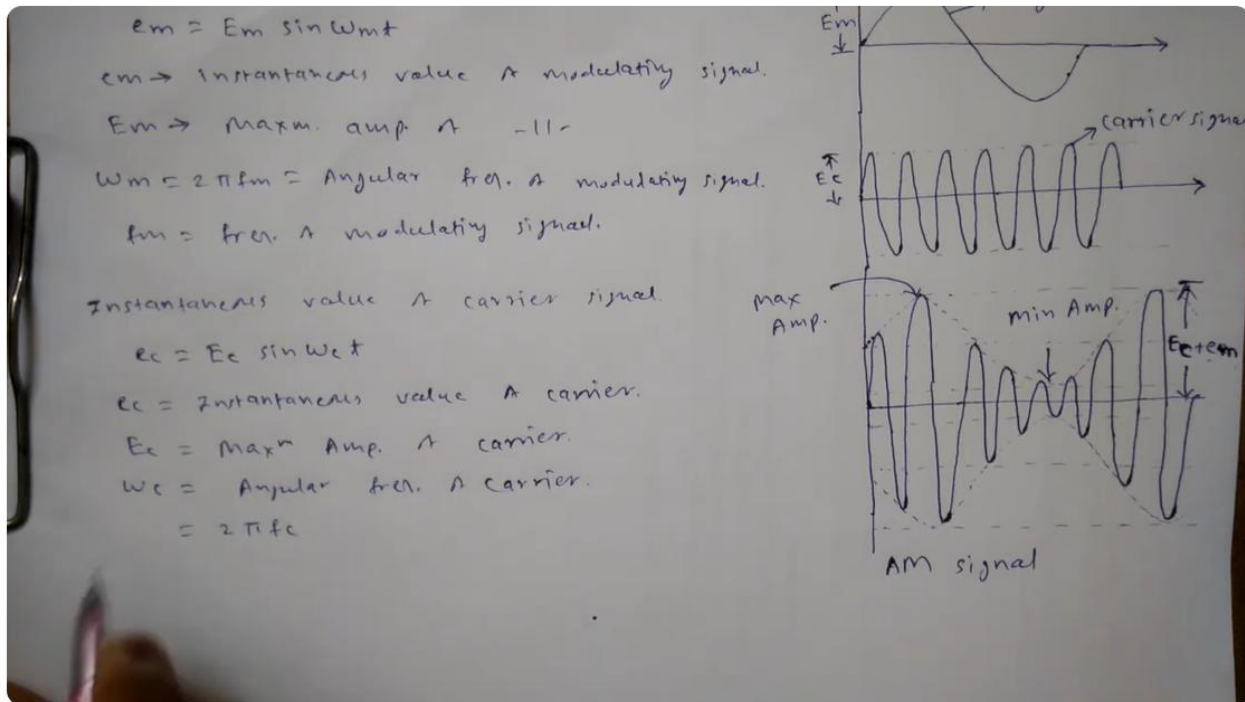 em = Em sin ωmt
em → instantaneous value of modulating signal.
Em → Maxm. amp. of -11-
ωm = 2πfm = Angular freq. of modulating signal.
fm = freq. of modulating signal.
Instantaneous value of carrier signal
ec = Ec sin ωct
ec = Instantaneous value of carrier.
Ec = Maxm Amp. of carrier.
ωc = Angular freq. of carrier.
= 2πfc
Em
carrier signal
Ec
Max
Amp.
min Amp.
Ec+em
AM signal